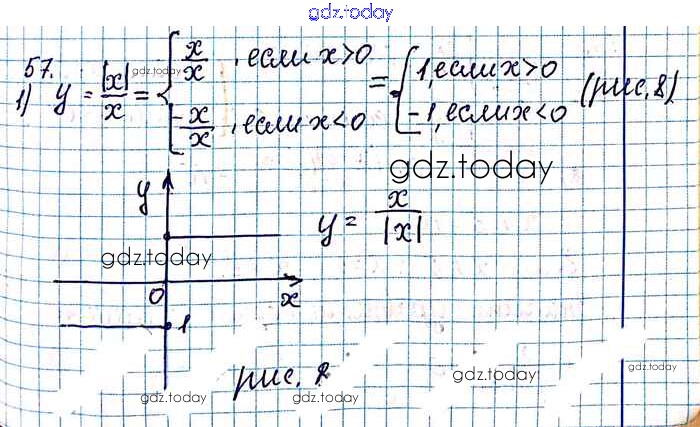 gdz.today
57.
1) y = |x|/x = { x/x , если x>0 = { 1, если x>0 (рис. 8)
-x/x , если x<0 -1, если x<0
gdz.today
gdz.today
y y = x/|x|
gdz.today
0 x
1
рис.
gdz.today gdz.today gdz.today gdz.today